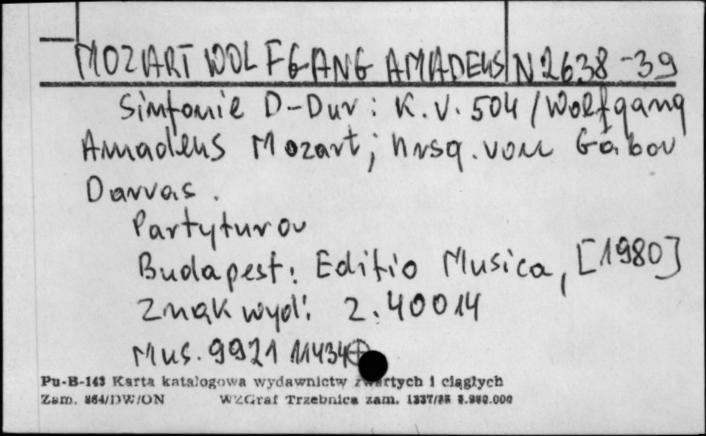 MOZART WOLFGANG AMADEUS N 2638-39
Simfonie D-Dur : K.V. 504 / Wolfgang
Amadeus Mozart ; hrsg. von Gábor
Darvas.
Partytura
Budapest : Editio Musica, [1980]
Znak wyd: Z. 40014
Mus. 9921 11434
Pu-B-143 Karta katalogowa wydawnictw zwartych i ciągłych
Zam. 864/DW/ON WZGraf Trzebnica zam.